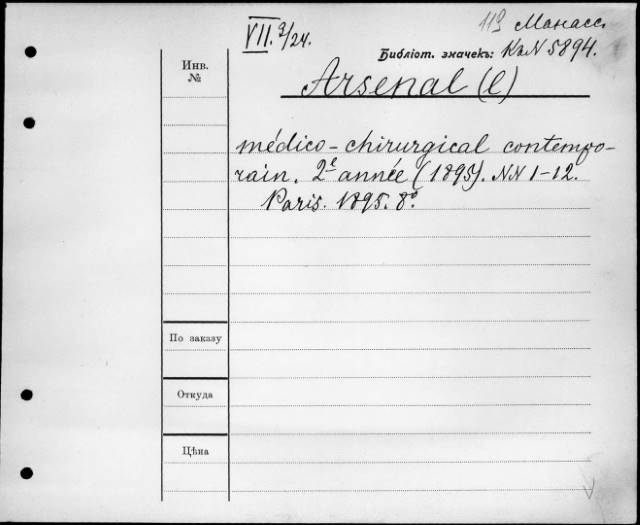 VII. 9/24.
119 Манасс.
Библіот. значекъ: КкN 5894.
Инв.
№
Arsenal (l')
médico-chirurgical contempo-
rain. 2e année (1895). NN 1-12.
Paris. 1895. 8º.
По заказу
Откуда
Цѣна